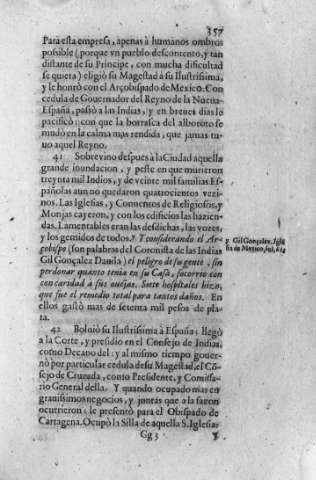 357
Para esta empresa, apenas à humanos ombros
possible (porque vn pueblo descontento, y tan
distante de su Principe, con mucha dificultad
se quieta) eligiò su Magestad à su Ilustrissima,
y le honrò con el Arçobispado de Mexico. Con
cedula de Gouernador del Reyno de la Nueua-
España, passò à las Indias, y en breues dias lo
pacificò: con que la borrasca del alboroto se
mudò en la calma mas rendida, que jamas tu-
uo aquel Reyno.
41 Sobreuino despues à la Ciudad aquella
grande inundacion, y peste en que murieron
treynta mil Indios, y de veinte mil familias Es-
pañolas aun no quedaron quatrocientos vezi-
nos. Las Iglesias, y Conuentos de Religiosos, y
Monjas cayeron, y con los edificios las hazien-
das. Lamentables eran las desdichas, las vozes,
y los gemidos de todos. Y considerando el Ar-
çobispo (son palabras del Coronista de las Indias
Gil Gonçalez Dauila) el peligro de su gente, sin
perdonar quanto tenia en su Casa, socorrio con
con caridad a sus ouejas. Siete hospitales hizo,
que fue el remedio total para tantos daños. En
ellos gastò mas de setenta mil pesos de pla-
ta.
y Gil Gonçalez. Igle
sia de Mexico, fol.
42 Boluiò su Ilustrissima à España: llegò
a la Corte, y presidio en el Consejo de Indias,
como Decano del: y al mismo tiempo gouer-
nò por particular cedula de su Magestad, el Cõ-
sejo de Cruzada, como Presidente, y Comissa-
rio General della. Y quando ocupado mas en
grauissimos negocios, y juntas que a la sazon
ocurrieron: le presentò para el Obispado de
Cartagena. Ocupò la Silla de aquella S. Iglesia:
Gg 3 Y